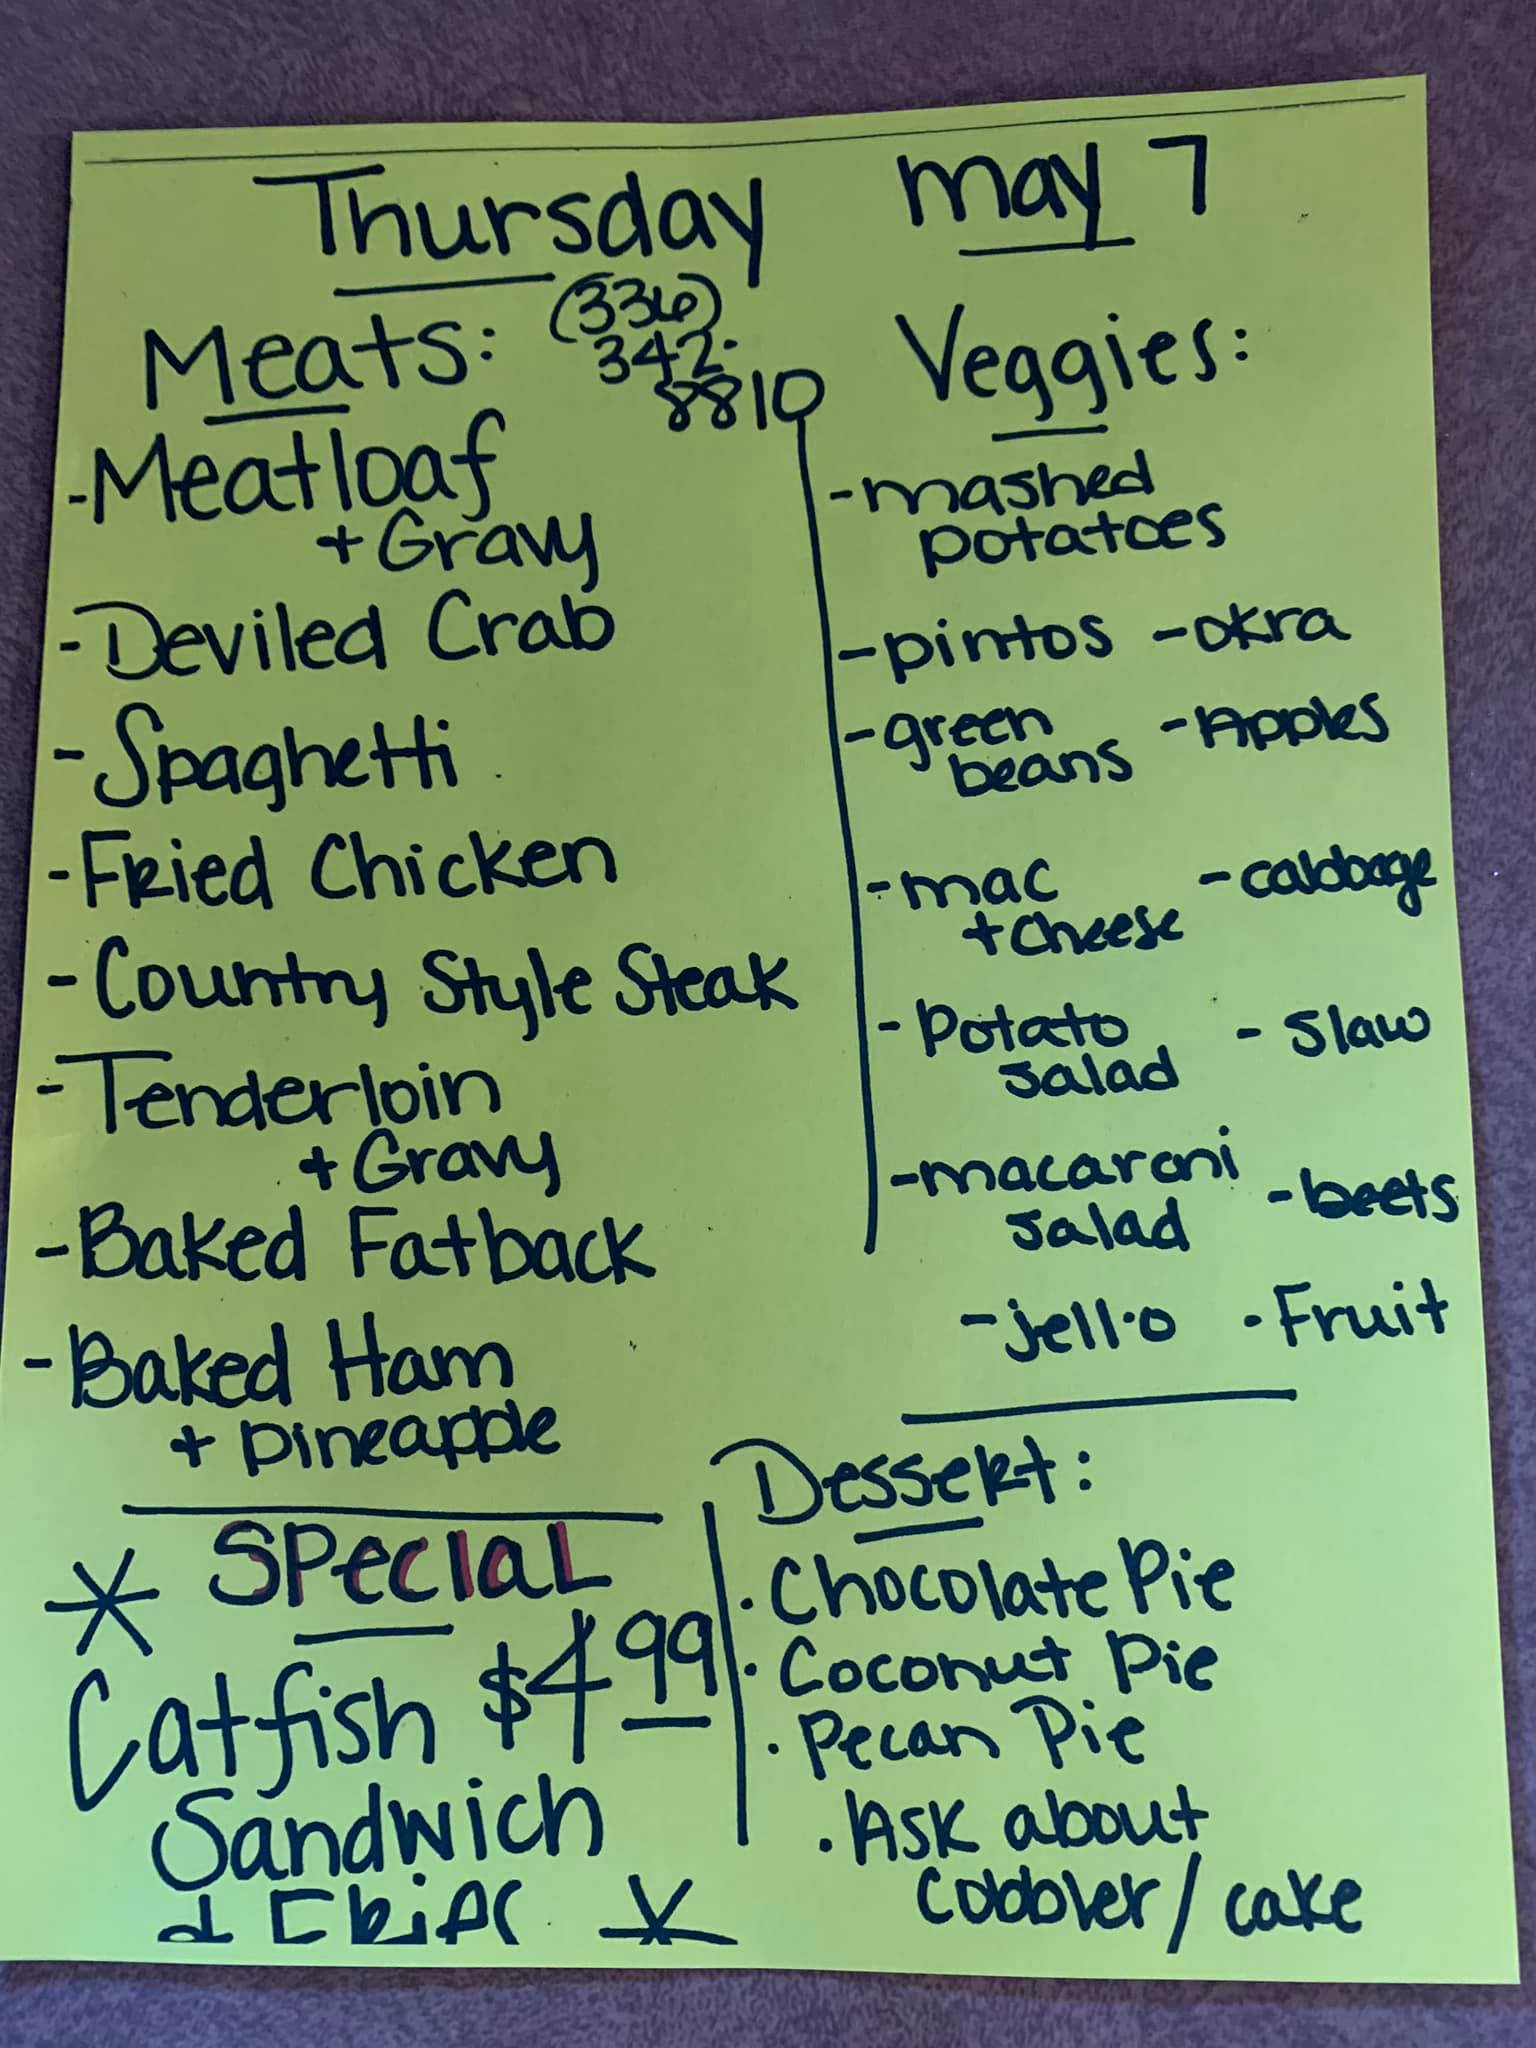 Thursday May 7
(336)
342-
8810
Meats:
-Meatloaf
+ Gravy
-Deviled Crab
-Spaghetti
-Fried Chicken
-Country Style Steak
-Tenderloin
+ Gravy
-Baked Fatback
-Baked Ham
+ pineapple
Veggies:
-mashed
potatoes
-pintos -okra
-green
beans -Apples
-mac
+ cheese -cabbage
-potato
salad -slaw
-macaroni
salad -beets
-jell-o -Fruit
SPecIaL
Catfish $4.99
Sandwich
+ Fries
Dessert:
·Chocolate Pie
·Coconut Pie
·Pecan Pie
·Ask about
cobbler/cake